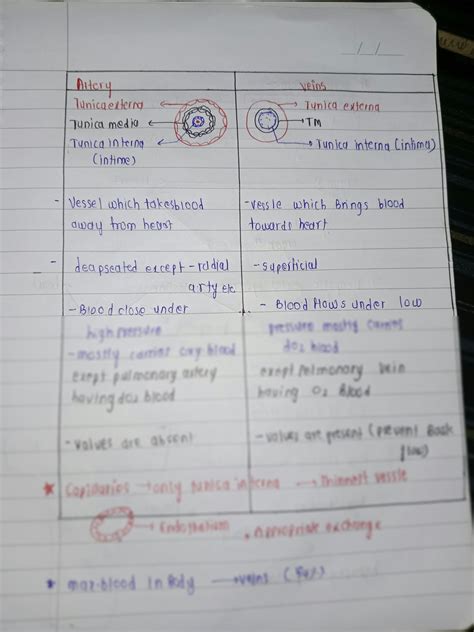 Artery
veins
Tunica externa
Tunica externa
Tunica media
TM
Tunica interna
(intime)
Tunica Interna (intima)
- Vessel which takes blood
away from heart
- vessle which Brings blood
towards heart
- deapseated except - radial
arty etc
- superficial
- Blood close under
high pressure
- Blood flows under low
pressure mostly carries
do2 blood
- mostly carries oxy blood
exept pulmonary artery
having do2 blood
exept Pulmonary vein
having O2 Blood
- valves are absent
- valves are present (prevent Back
flow)
* Capillaries → only tunica interna → Thinnest vessle
→ Endothelium
. Appropriate exchange
* max-blood in Body → veins